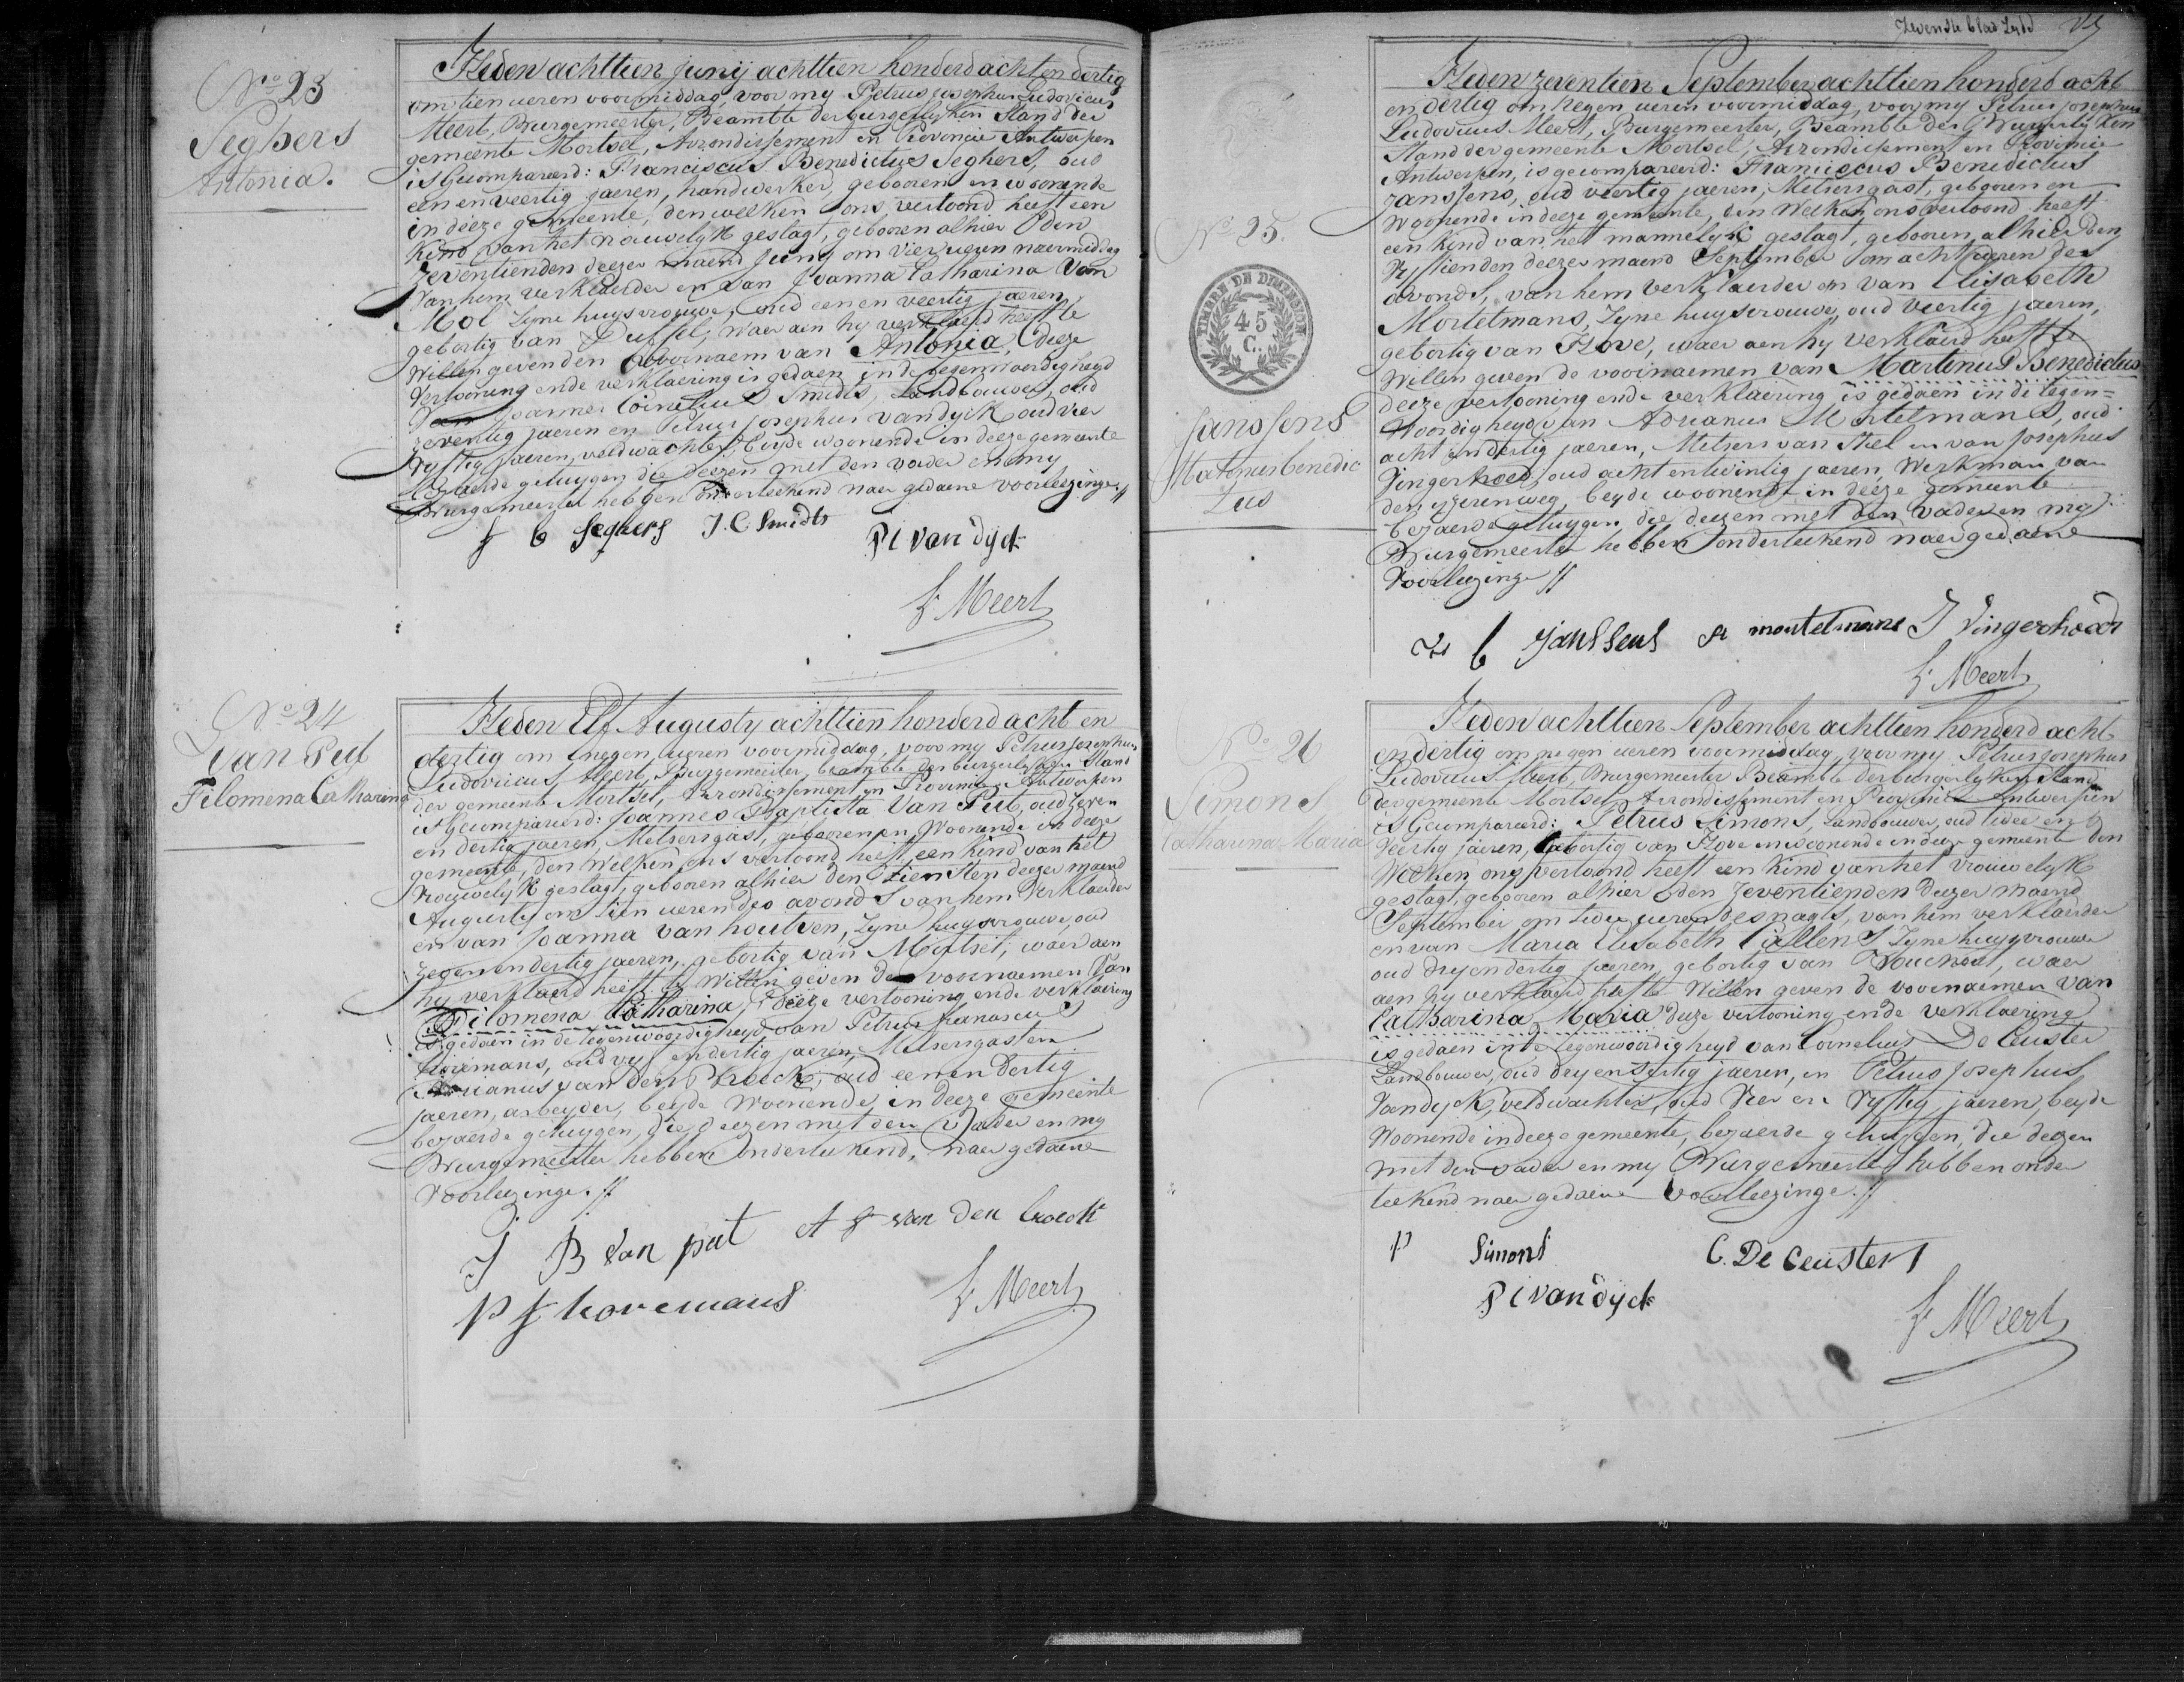 No 23
Seghers
Antonia.
Heden achttien junij achttien honderd acht en dertig
om tien ueren voormiddag, voor my Petrus josephus Ludovicus
Meert, Burgemeester, Beambte der burgerlyken Stand der
gemeente Mortsel, Arrondissement en Provincie Antwerpen
is Gecompareerd: Franciscus Benedictus Seghers, oud
een en veertig jaeren, handwerker, gebooren en woonende
in deeze gemeente, den welken ons vertoond heeft een
kind van het vrouwelyk geslagt, gebooren alhier den
zeventienden deezer maend junij om vier ueren naermiddag
van hem verklaerder en van Joanna Catharina Van
Mol zyne huysvrouwe, oud een en veertig jaeren,
gebortig van Duffel, waer aen hy verklaerd heeft te
willen geven den voornaem van Antonia, deeze
vertooning ende verklaering is gedaen in de tegenwoordigheyd
van Joannes Cornelius Smidts, Landbouwer, oud
zeventig jaeren en Petrus josephus vandyck oud vier
vyftig jaeren, veldwachter, beyde woonende in deeze gemeente
bejaerde getuygen die deezen met den vader en my
Burgemeester hebben onderteekend naer gedaene voorleezinge //
f b Seghers J. C. Smidts
P i van dyck
L. Meert
No 24
Van Put
Filomena Catharina
Heden Elf Augusty achttien honderd acht en
dertig om negen ueren voormiddag, voor my Petrus josephus
Ludovicus Meert, Burgemeester, beambte der burgerlyken Stand
der gemeente Mortsel, Arrondissement en Provincie Antwerpen
is Gecompareerd: Joannes Baptista Van Put, oud zeven
en dertig jaeren, Metsersgast, gebooren en Woonende in deeze
gemeente, den Welken ons vertoond heeft een kind van het
vrouwelyk geslagt, gebooren alhier den tiensten deezer maend
Augusty om tien ueren des avonds van hem Verklaerder
en van Joanna van houtven, zyne huysvrouwe, oud
zeven en dertig jaeren, gebortig van Mortsel, waer aen
hy verklaerd heeft te Willen geven de voornaemen van
Filomena Catharina, deeze vertooning ende verklaering
is gedaen in de tegenwoordigheyd van Petrus franciscus
Horemans, oud vyf en dertig jaeren, Metsersgast en
Adrianus van den Broeck, oud een en dertig
jaeren, arbeyder, beyde Woonende in deeze gemeente
bejaerde getuygen, die deezen met den Vader en my
Burgemeester hebben onderteekend, naer gedaene
voorleezinge. //
J B Van put A f van den broeck
P f horemans
L. Meert
Zevenste blad
No 25.
TIMBRE DE DIMENSION
45
C.
Janssens
Martinus benedic
tus
Heden zeventien September achttien honderd acht
en dertig om negen ueren voormiddag, voor my Petrus josephus
Ludovicus Meert, Burgemeester, Beambte der Burgerlyken
Stand der gemeente Mortsel, Arrondissement en Provincie
Antwerpen, is gecompareerd: Franciscus Benedictus
Janssens, oud veertig jaeren, Metsersgast, gebooren en
Woonende in deeze gemeente, den Welken ons vertoond heeft
een kind van het mannelyk geslagt, gebooren alhier den
vyftienden deezer maend September om acht ueren des
avonds, van hem verklaerder en van Elisabeth
Mortelmans, zyne huysvrouwe, oud veertig jaeren,
gebortig van Hove, waer aen hy verklaerd heeft te
Willen geven de voornaemen van Martinus Benedictus
deeze vertooning ende verklaering is gedaen in de tegen=
woordigheyd van Adrianus Mortelmans, oud
acht en dertig jaeren, Metser van Stiel en van Josephus
Vingerhoed, oud acht en twintig jaeren, Werkman van
den yzerenweg, beyde woonende in deeze gemeente
bejaerde getuygen, die deezen met den vader en my
Burgemeester hebben onderteekend naer gedaene
Voorleezinge //
F b Janssens A mortelmans J Vingerhoedt
L. Meert
No 26
Simons
Catharina Maria
Heden achttien September achttien honderd acht
en dertig om negen ueren voormiddag, voor my Petrus josephus
Ludovicus Meert, Burgemeester Beambte der burgerlyken Stand
der gemeente Mortsel Arrondissement en Provincie Antwerpen
is Gecompareerd: Petrus Simons, Landbouwer, oud twee en
veertig jaeren, gebortig van Hove en woonende in deeze gemeente den
Welken ons vertoond heeft een kind van het vrouwelyk
geslagt, gebooren alhier den zeventienden deezer maend
September om twee ueren des nagts, van hem verklaerder
en van Maria Elisabeth Callens zyne huysvrouwe
oud dry en dertig jaeren, gebortig van Bouchout, waer
aen hy verklaerd heeft te Willen geven de voornaemen van
Catharina Maria deeze vertooning ende verklaering
is gedaen in de tegenwoordigheyd van Cornelius De Ceuster
Landbouwer, oud dry en veertig jaeren, en Petrus Josephus
Vandyck, veldwachter, oud Vier en Vyftig jaeren, beyde
Woonende in deeze gemeente, bejaerde getuygen, die deezen
met den vader en my Burgemeester hebben onder
teekend naer gedaene voorleezinge. //
P Simons C. De Ceuster
P i van dyck
L. Meert